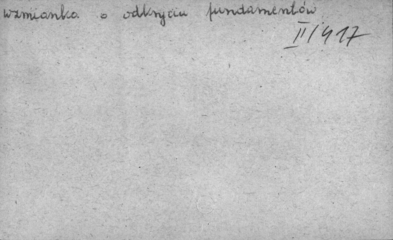 wzmianka o odkryciu fundamentów
II/417